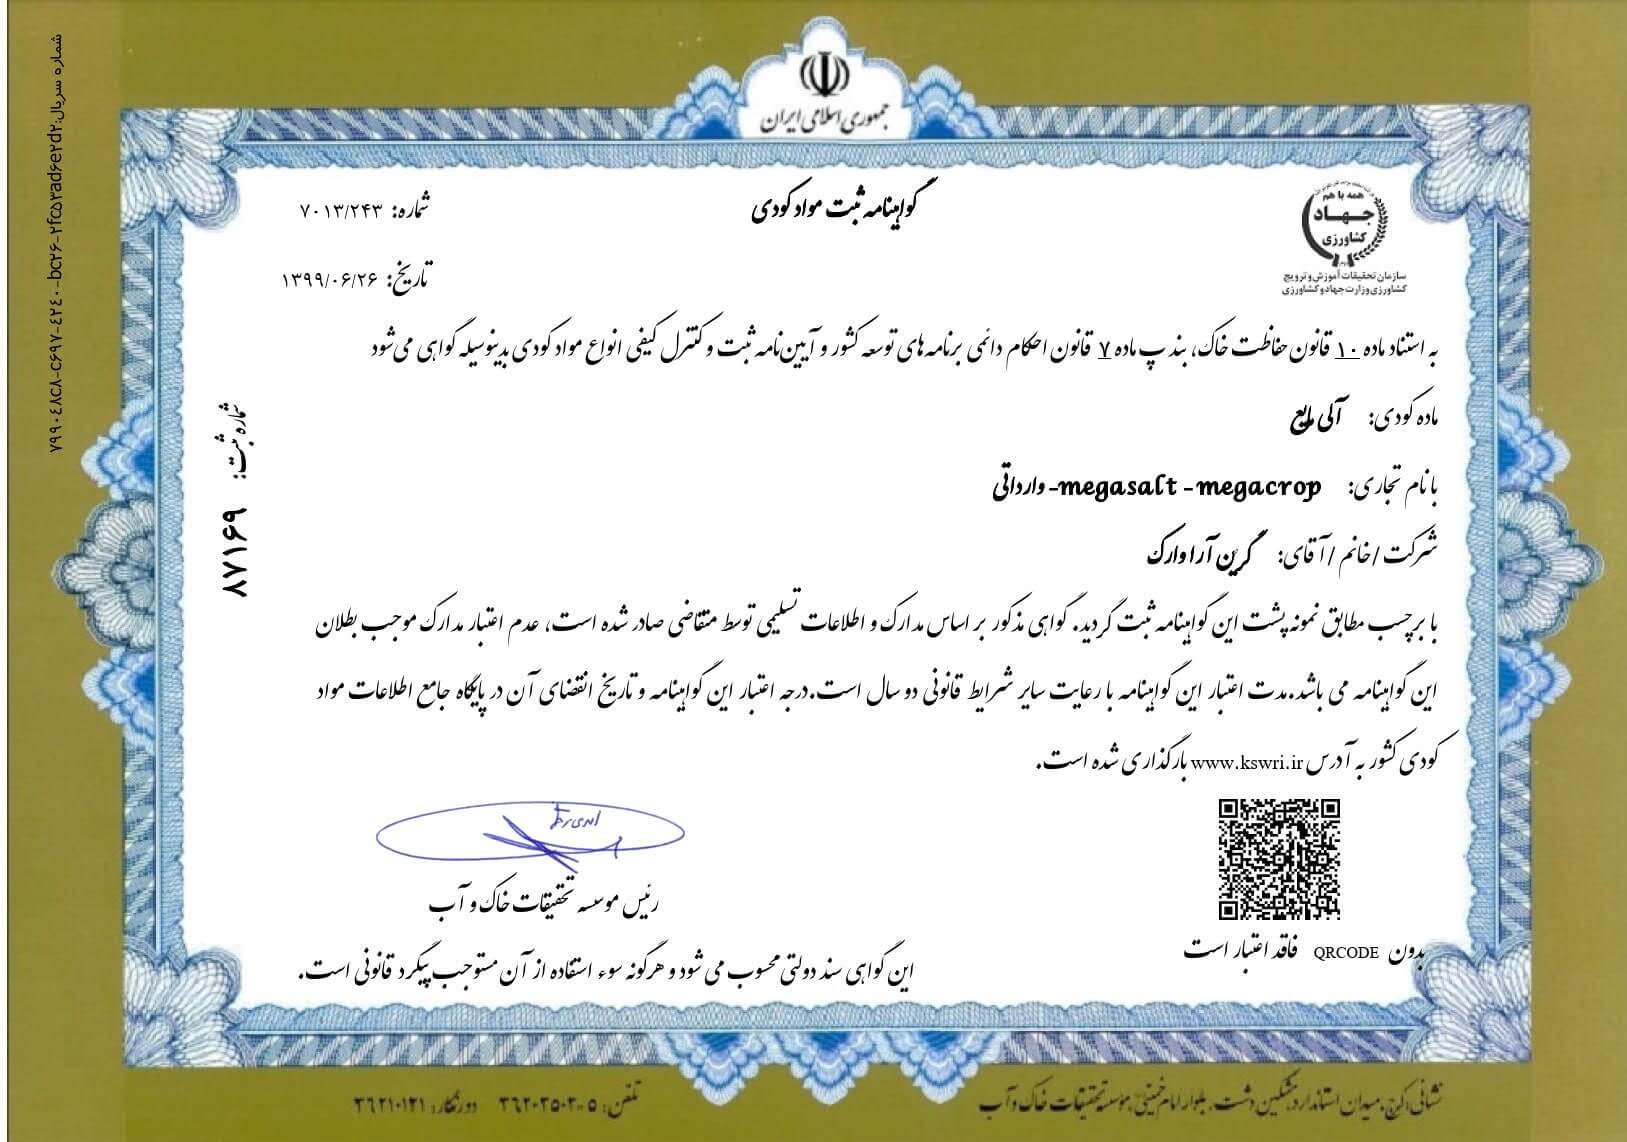 جمهوری اسلامی ایران
همه با هم
جهاد
کشاورزی
سازمان تحقیقات آموزش و ترویج
کشاورزی وزارت جهاد و کشاورزی
گواهینامه ثبت مواد کودی
شماره: ۷۰۱۳/۲۴۳
تاریخ: ۱۳۹۹/۰۶/۲۶
به استناد ماده ۱۰ قانون حفاظت خاک، بند پ ماده ۷ قانون احکام دائمی برنامه‌های توسعه کشور و آیین‌نامه ثبت و کنترل کیفی انواع مواد کودی بدینوسیله گواهی می‌شود
ماده کودی: آلی مایع
با نام تجاری: megasalt - megacrop- وارداتی
شرکت / خانم / آقای: گرین آرا وارک
با برچسب مطابق نمونه پشت این گواهینامه ثبت گردید. گواهی مذکور بر اساس مدارک و اطلاعات تسلیمی توسط متقاضی صادر شده است، عدم اعتبار مدارک موجب بطلان
این گواهینامه می باشد.مدت اعتبار این گواهینامه با رعایت سایر شرایط قانونی دو سال است.درجه اعتبار این گواهینامه و تاریخ انقضای آن در پایگاه جامع اطلاعات مواد
کودی کشور به آدرس www.kswri.ir بارگذاری شده است.
شماره ثبت: ۸۷۱۶۹
شماره سریال:۷۹۹۰۴۸c۸-c۶۹۷-۴۲۴۰-bc۲۶-۲fc۵۳ad۶e۲d۲
رئیس موسسه تحقیقات خاک و آب
بدون QRCODE فاقد اعتبار است
این گواهی سند دولتی محسوب می شود و هرگونه سوء استفاده از آن مستوجب پیگرد قانونی است.
نشانی: کرج، میدان استاندارد، مشکین دشت، بلوار امام خمینی، موسسه تحقیقات خاک و آب
تلفن: ۵-۳۶۲۰۳۵۰۲ دورنگار: ۳۶۲۱۰۱۲۱